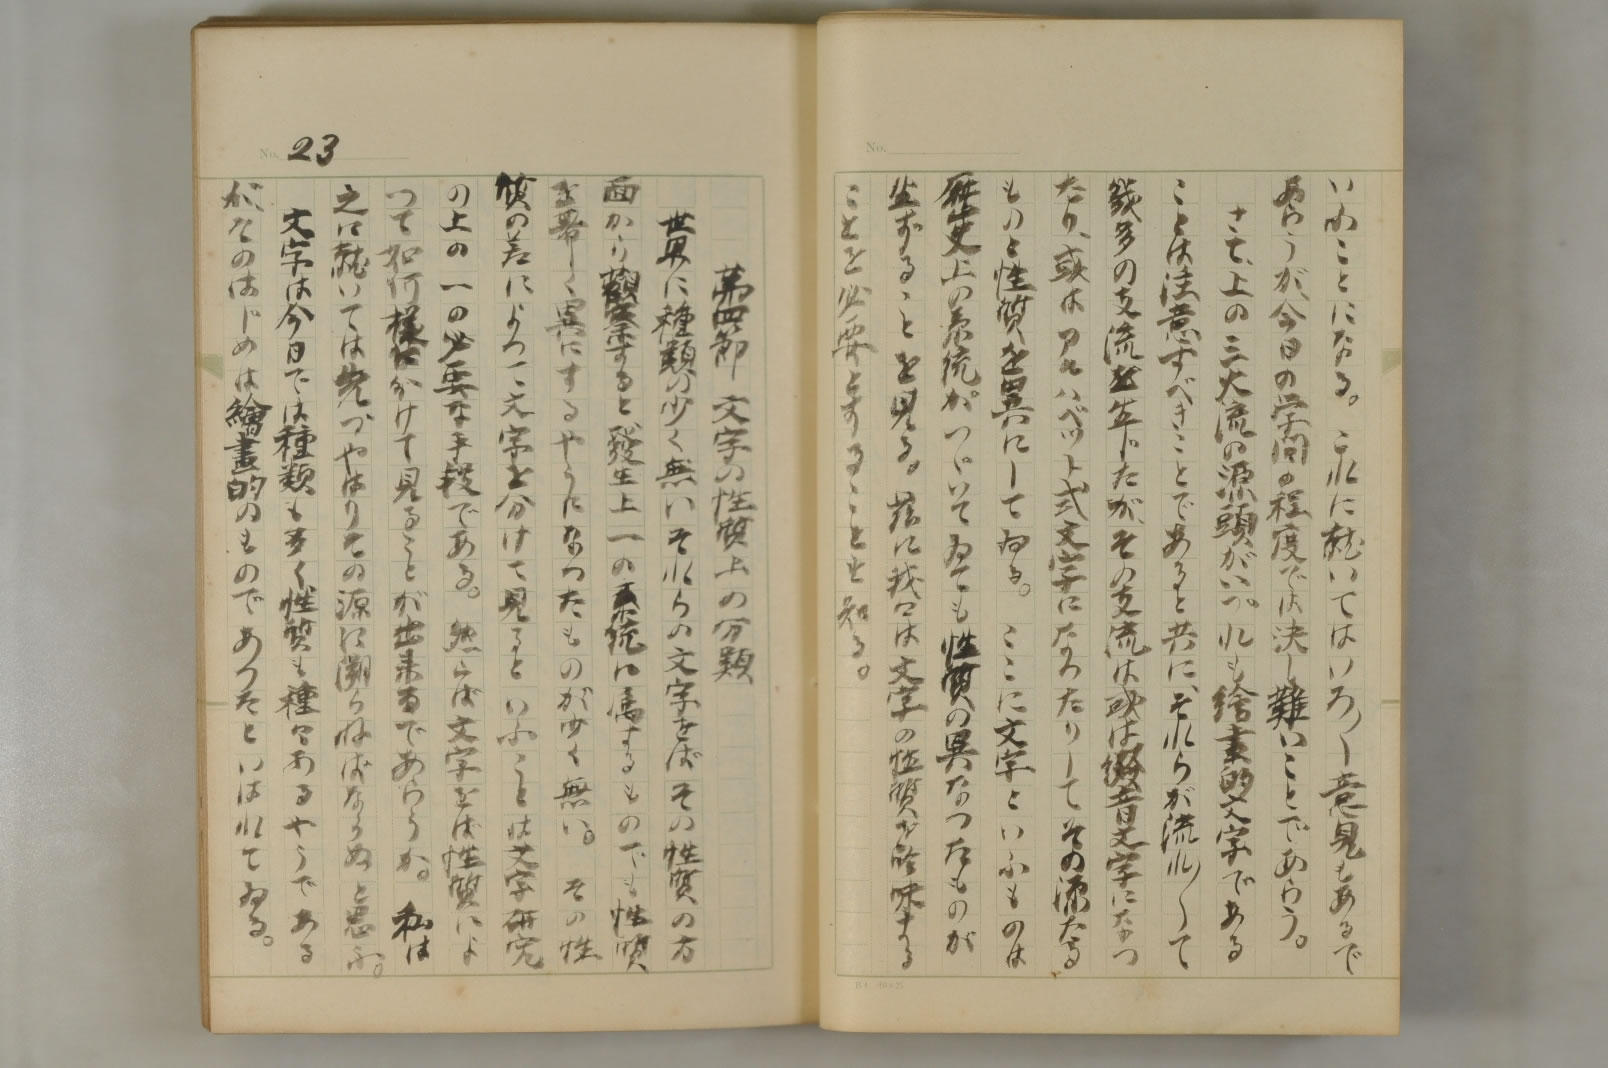 No.
いふことになる。これに就いてはいろ〳〵意見もあるで
あらうが、今日の学問の程度では決し難いことであらう。
さて、上の三大流の源頭がいづれも絵画的文字である
ことは注意すべきことであると共に、それらが流れ〳〵て
幾多の支流を生じたが、その支流は或は綴音文字になつ
たり、或はアルハベット式文字になつたりしてその源たる
ものと性質を異にしてゐる。ここに文字といふものは
歴史上の系統がつゞいてゐても性質の異なつたものが
生ずることを見る。茲に我々は文字の性質を吟味する
ことを必要とすることを知る。
No. 23
第四節 文字の性質上の分類
世界に種類の少く無いそれらの文字をばその性質の方
面から觀察すると發生上一の系統に属するものでも性質
を著しく異にするやうになつたものが少く無い。その性
質の差によつて文字を分けて見るといふことは文字研究
の上の一の必要な手段である。然らば文字をば性質によ
つて如何様に分けて見ることが出来るであらうか。私は
之に就いては先づやはりその源に溯らねばならぬと思ふ。
文字は今日では種類も多く性質も種々あるやうである
が、そのはじめは繪畫的のものであつたといはれてゐる。